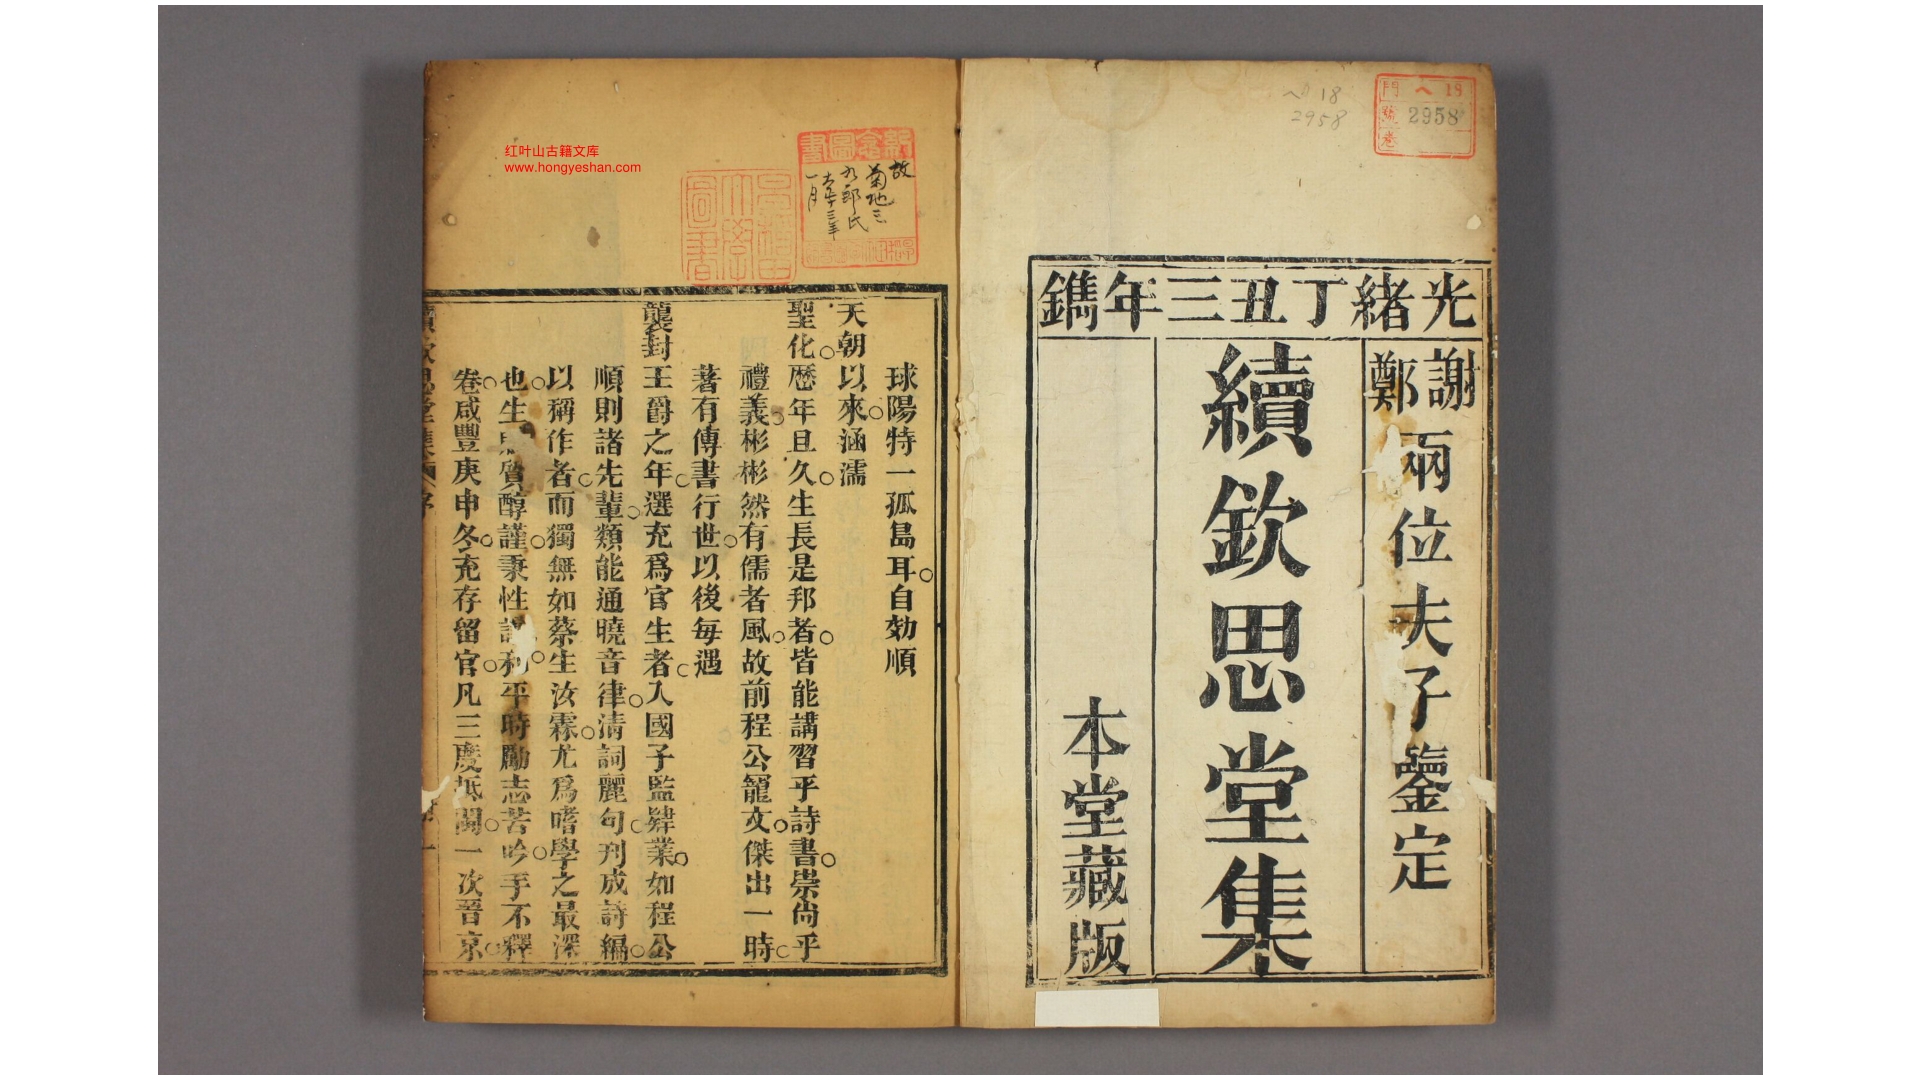 光緒丁丑三年鐫
謝鄭兩位夫子鑒定
續欽思堂集
本堂藏版
へ 18
2958
門 へ 18
號 2958
卷
球陽特一孤島耳自効順
天朝以來涵濡
聖化歷年且久生長是邦者皆能講習乎詩書崇尙乎
禮義彬彬然有儒者風故前程公寵文傑出一時
著有傳書行世以後每遇
襲封王爵之年選充爲官生者入國子監肄業如程公
順則諸先輩類能通曉音律淸詞麗句刊成詩編
以稱作者而獨無如蔡生汝霖尤爲嗜學之最深
也生 質醇謹秉性 和平時勵志苦吟手不釋
卷咸豐庚申冬充存留官凡三度抵閩一次晉京
故
菊地三
九郎氏
大正十三年
一月
红叶山古籍文库
www.hongyeshan.com